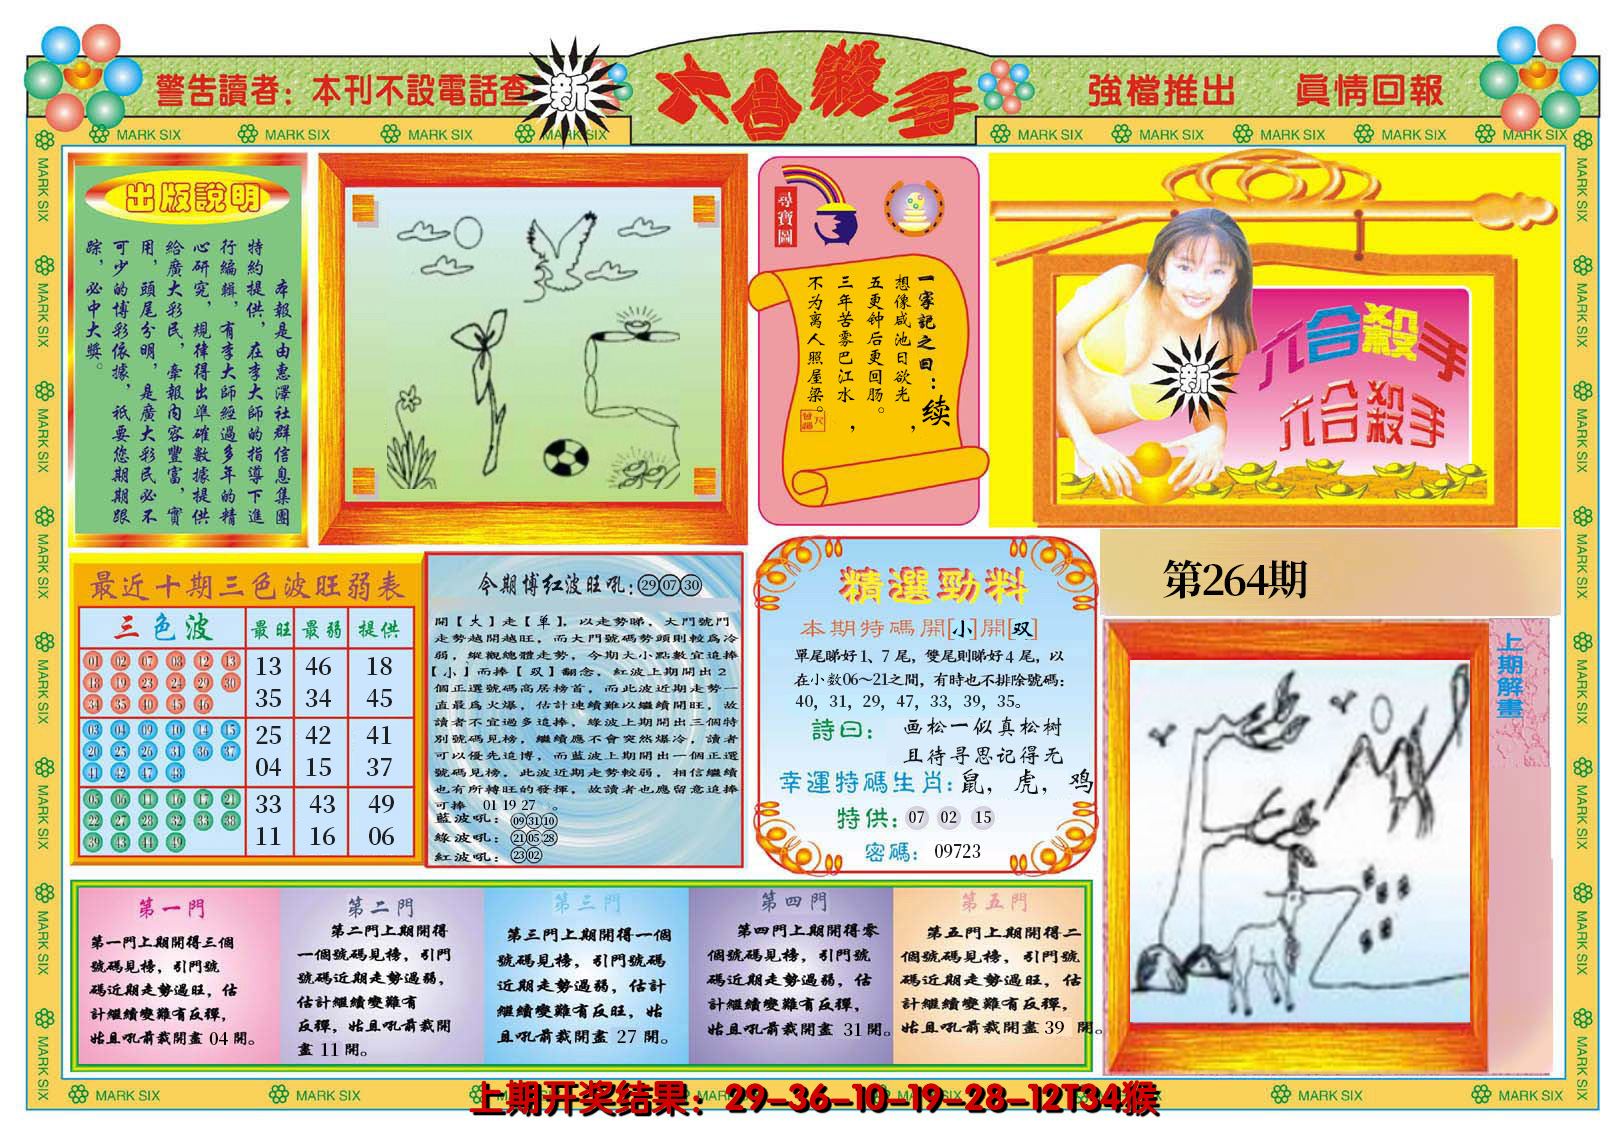 警告讀者：本刊不設電話查
新
六合殺手
強檔推出 真情回報
MARK SIX
出版說明
本報是由惠澤社群信息集團
特約提供，在李大師的指導下進
行編輯，有李大師經過多年的精
心研究，規律得出準確數據提供
給廣大彩民，牽報內容豐富，實
用，頭尾分明，是廣大彩民必不
可少的博彩依據，祇要您期期跟
踪，必中大獎。
尋寶圖
一家記之曰：续
想像咸池日欲光，
五更钟后更回肠。
三年苦雾巴江水，
不为离人照屋梁。
新
六合殺手
六合殺手
第264期
最近十期三色波旺弱表
三色波 最旺 最弱 提供
01 02 07 08 12 13
18 19 23 24 29 30
34 35 40 45 46
13 46 18
35 34 45
03 04 09 10 14 15
20 25 26 31 36 37
41 42 47 48
25 42 41
04 15 37
05 06 11 16 17 21
22 27 28 32 33 38
39 43 44 49
33 43 49
11 16 06
今期博红波旺吼：29 07 30
開【大】走【單】，以走勢睇，大門號門
走勢越開越旺，而大門號碼勢頭則較爲冷
弱，縱觀總體走勢，今期大小點數宜追捧
【小】而捧【双】翻念，紅波上期開出2
個正選號碼高居榜首，而此波近期走勢一
直最爲火爆，估計連續難以繼續開旺，故
讀者不宜過多追捧，綠波上期開出三個特
別號碼見榜，繼續應不會突然爆冷，讀者
可以優先追博，而藍波上期開出一個正選
號碼見榜，此波近期走勢較弱，相信繼續
也有所轉旺的發揮，故讀者也應留意追捧
可捧 01 19 27 。
藍波吼：09 31 10
綠波吼：21 05 28
紅波吼：23 02
精選勁料
本期特碼開[小]開[双]
單尾睇好1、7尾，雙尾則睇好4尾，以
在小数06～21之間，有時也不排除號碼：
40，31，29，47，33，39，35。
詩曰： 画松一似真松树
且待寻思记得无
幸運特碼生肖：鼠，虎，鸡
特供：07 02 15
密碼：09723
上期解畫
第一門
第一門上期開得三個
號碼見榜，引門號
碼近期走勢過旺，估
計繼續變難有反彈，
姑且吼前裁開畫 04 開。
第二門
第二門上期開得
一個號碼見榜，引門
號碼近期走勢過弱，
估計繼續變難有
反彈，姑且吼前裁開
畫 11 開。
第三門
第三門上期開得一個
號碼見榜，引門號碼
近期走勢過弱，估計
繼續變難有反旺，姑
且吼前裁開畫 27 開。
第四門
第四門上期開得零
個號碼見榜，引門號
碼近期走勢過弱，估
計繼續變難有反彈，
姑且吼前裁開畫 31 開。
第五門
第五門上期開得二
個號碼見榜，引門號
碼近期走勢過旺，估
計繼續變難有反彈，
姑且吼前裁開畫 39 開。
上期开奖结果：29-36-10-19-28-12T34猴